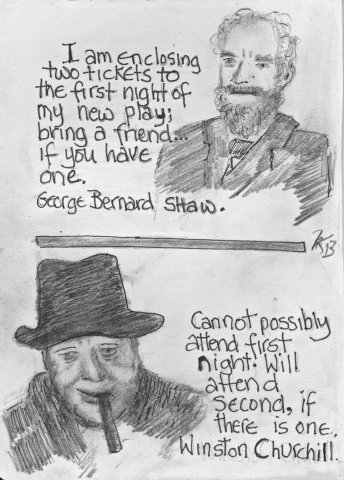 I am enclosing
two tickets to
the first night of
my new play;
bring a friend...
if you have
one.
George Bernard Shaw.
Cannot possibly
attend first
night. Will
attend
second, if
there is one.
Winston Churchill.